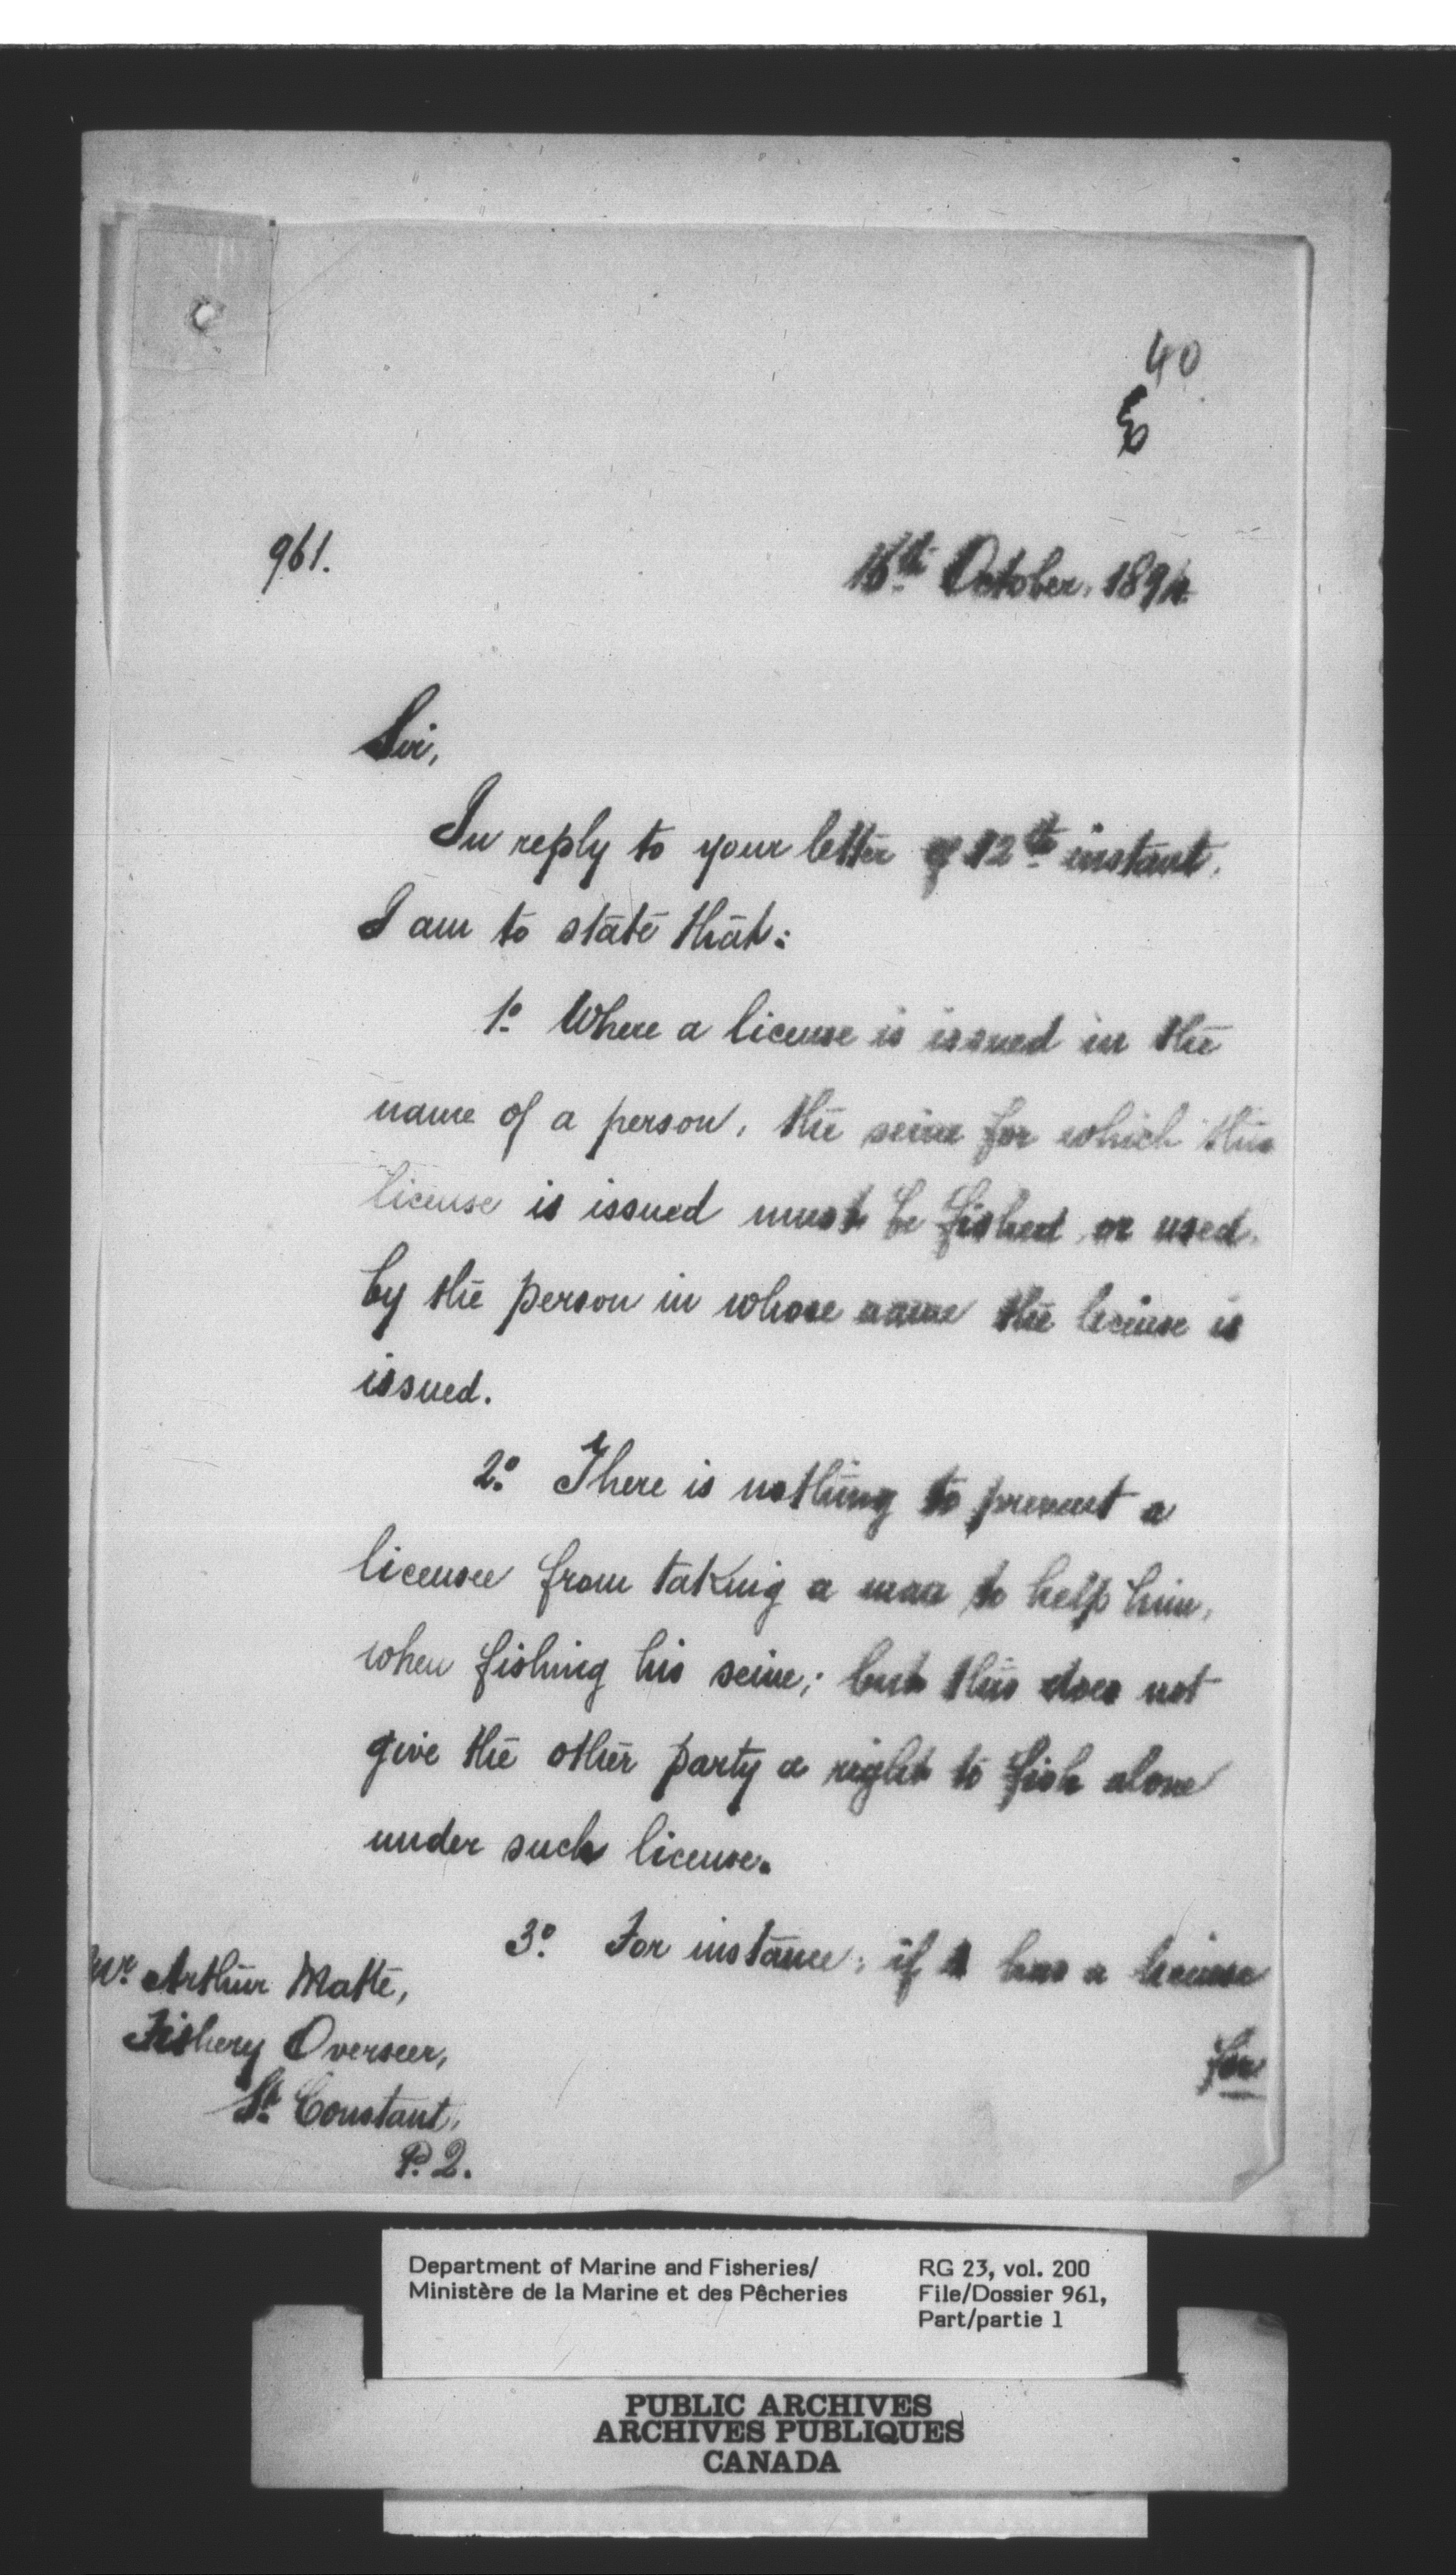 40
961.
16th October, 1894
Sir,
In reply to your letter of 12th instant,
I am to state that:
1o. Where a license is issued in the
name of a person, the seine for which this
license is issued must be fished or used,
by the person in whose name the license is
issued.
2o. There is nothing to prevent a
licensee from taking a man to help him,
when fishing his seine; but this does not
give the other party a right to fish alone
under such license.
3o. For instance, if A has a license
for
Mr. Arthur Matte,
Fishery Overseer,
St. Constant,
P.Q.
Department of Marine and Fisheries/
Ministère de la Marine et des Pêcheries
RG 23, vol. 200
File/Dossier 961,
Part/partie 1
PUBLIC ARCHIVES
ARCHIVES PUBLIQUES
CANADA